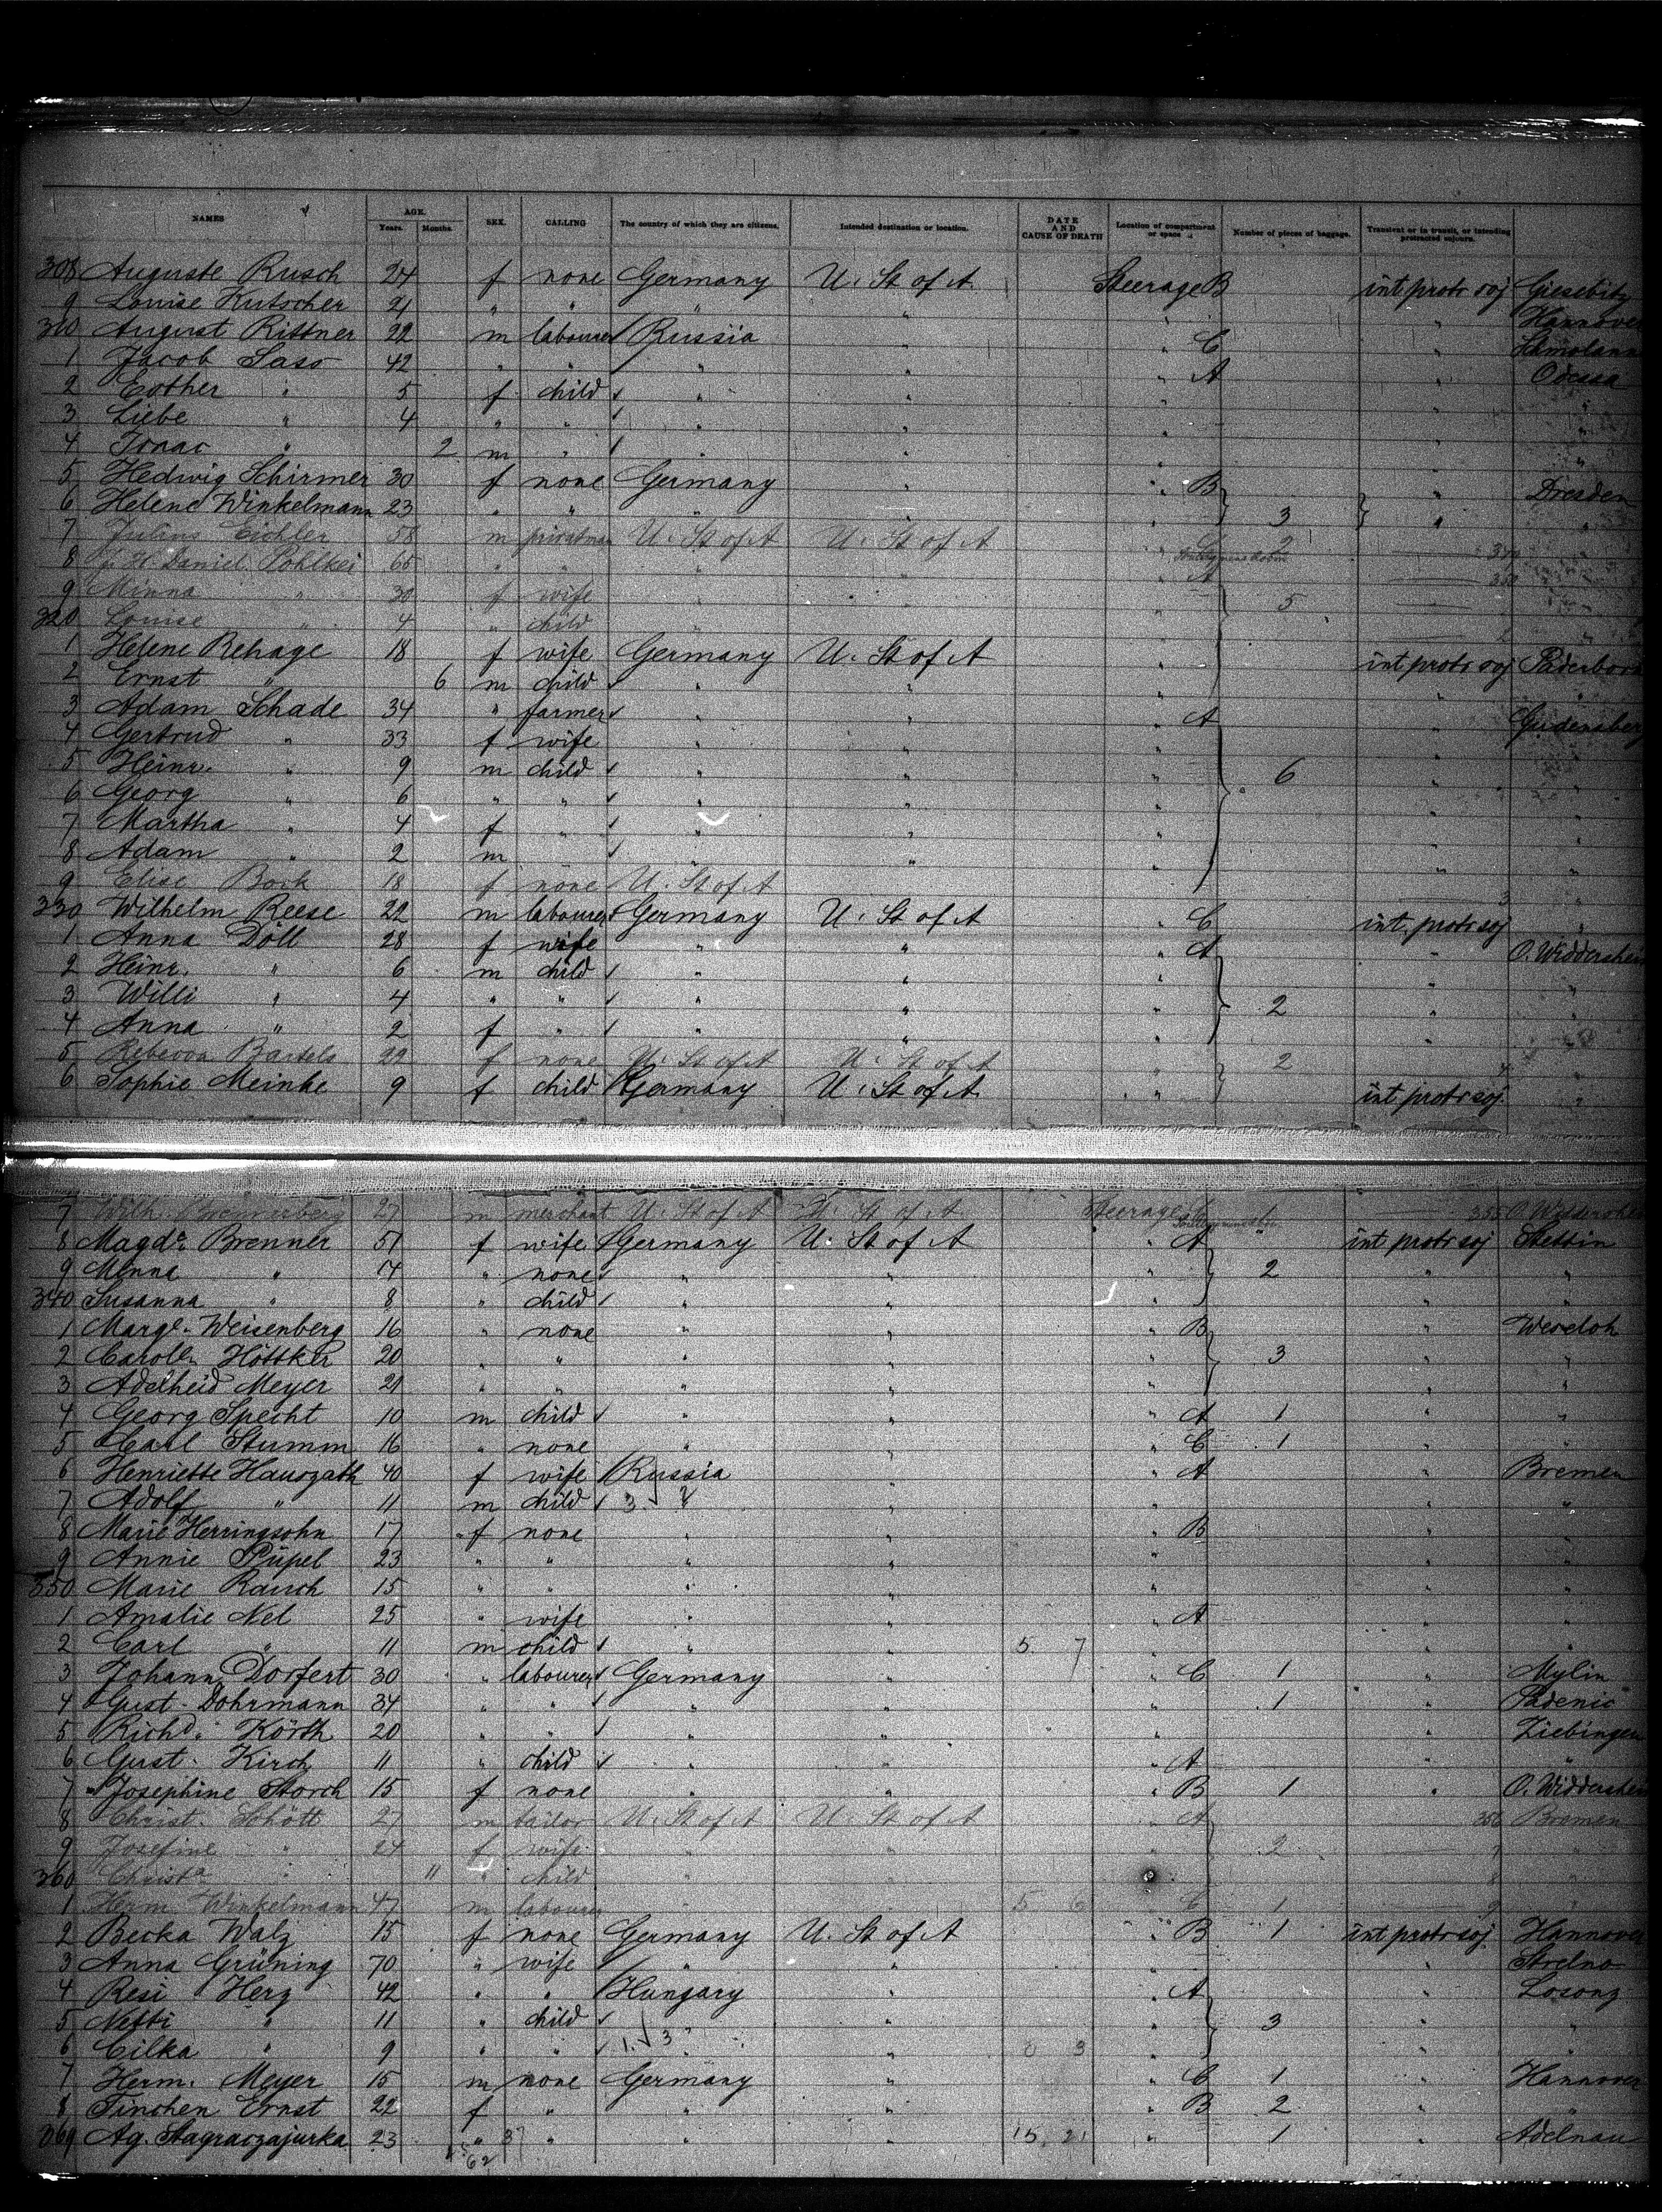 NAMES AGE. SEX. CALLING The country of which they are citizens. Intended destination or location. DATE AND CAUSE OF DEATH Location of compartment or space Number of pieces of baggage. Transient or in transit, or intending protracted sojourn.
Years. Months.
308 Auguste Rusch 24 f none Germany U. St of A Steerage B int. protr soj Giesebitz
9 Louise Kutscher 21 " " " " " " Hannover
310 August Rittner 22 m labourer Russia " " C "
1 Jacob Saso 42 " " " " " A " Odessa
2 Esther " 5 f child " " " " "
3 Liebe " 4 " " " " " " "
4 Isaac " 2 m " " " " " "
5 Hedwig Schirmer 30 f none Germany " " B " Dresden
6 Helene Winkelmann 23 " " " " " 3 " "
7 Julius Eichler 58 m privatman U. St of A U. St of A " C 2
8 Daniel Pohlkei 65 " " " " " A
9 Minna " 30 f wife " " " 5
320 Louise " 4 " child " " "
1 Helene Rehage 18 f wife Germany U. St of A " int. protr soj Paderborn
2 Ernst " 6 m child " " " " "
3 Adam Schade 34 " farmer " " " A " Gudensberg
4 Gertrud " 33 f wife " " " " "
5 Heinr. " 9 m child " " " 6 " "
6 Georg " 6 " " " " " " "
7 Martha " 4 f " " " " " "
8 Adam " 2 m " " " " "
9 Elise Bock 18 f none U. St of A
330 Wilhelm Reese 22 m labourer Germany U. St of A " C int. protr soj "
1 Anna Döll 28 f wife " " " A " O. Widdersheim
2 Heinr. " 6 m child " " " " "
3 Willi " 4 " " " " " 2 " "
4 Anna " 2 f " " " " " "
5 Rebecca Bartels 22 f none U. St of A U. St of A " 2 4 "
6 Sophie Meinke 9 f child Germany U. St of A " int. protr soj. "
7 Wilh. 27 m merchant U. St of A U. St of A Steerage C 335 O. Widdersheim
8 Magd. Brenner 51 f wife Germany U. St of A " A int protr soj Stettin
9 Minna " 14 " none " " " 2 " "
340 Susanna " 8 " child " " " " "
1 Margr. Weisenberg 16 " none " " " B " Weseloh
2 Caroln Höttker 20 " " " " " 3 " "
3 Adelheid Meyer 21 " " " " " " "
4 Georg Specht 10 m child " " " A 1 " "
5 Carl Stumm 16 " none " " " C 1 " "
6 Henriette Hauszath 40 f wife Russia " " A " Bremen
7 Adolf " 11 m child " " " " "
8 Marie Herringsohn 17 f none " " " B " "
9 Annie Püpel 23 " " " " " " "
350 Marie Rauch 15 " " " " " " "
1 Amalie Nel 25 " wife " " " A " "
2 Carl " 11 m child " " 5 7 " " "
3 Johann Dorfert 30 " labourer Germany " " C 1 " Mylin
4 Gust. Dohrmann 34 " " " " " 1 " Padenic
5 Richd. Körth 20 " " " " " " Ziebingen
6 Gust. Kirch 11 " child " " " A " "
7 Josephine Storch 15 f none " " " B 1 " O. Widdersheim
8 Christ. Schött 27 m tailor U. St of A U. St of A " A 356 Bremen
9 Josefine " 24 f wife " " " 2 7 "
360 Christa " 11 " child " " 8 "
1 Herm. Winkelmann 47 m labourer " " 5 6 " C 1 9 "
2 Becka Walz 15 f none Germany U. St of A " B 1 int protr soj Hannover
3 Anna Grüning 70 " wife " " " " Strelno
4 Resi Herz 42 " " Hungary " " A " Losonz
5 Netti " 11 " child " " 3 " "
6 Cilka " 9 " " 1. 3 " " 3 " " "
7 Herm. Meyer 15 m none Germany " " C 1 " Hannover
8 Tinchen Ernst 22 f " " " " B 2 " "
369 Ag. Stagraczajurka 23 " 37 " " " 15 21 " 1 " Adelnau
62